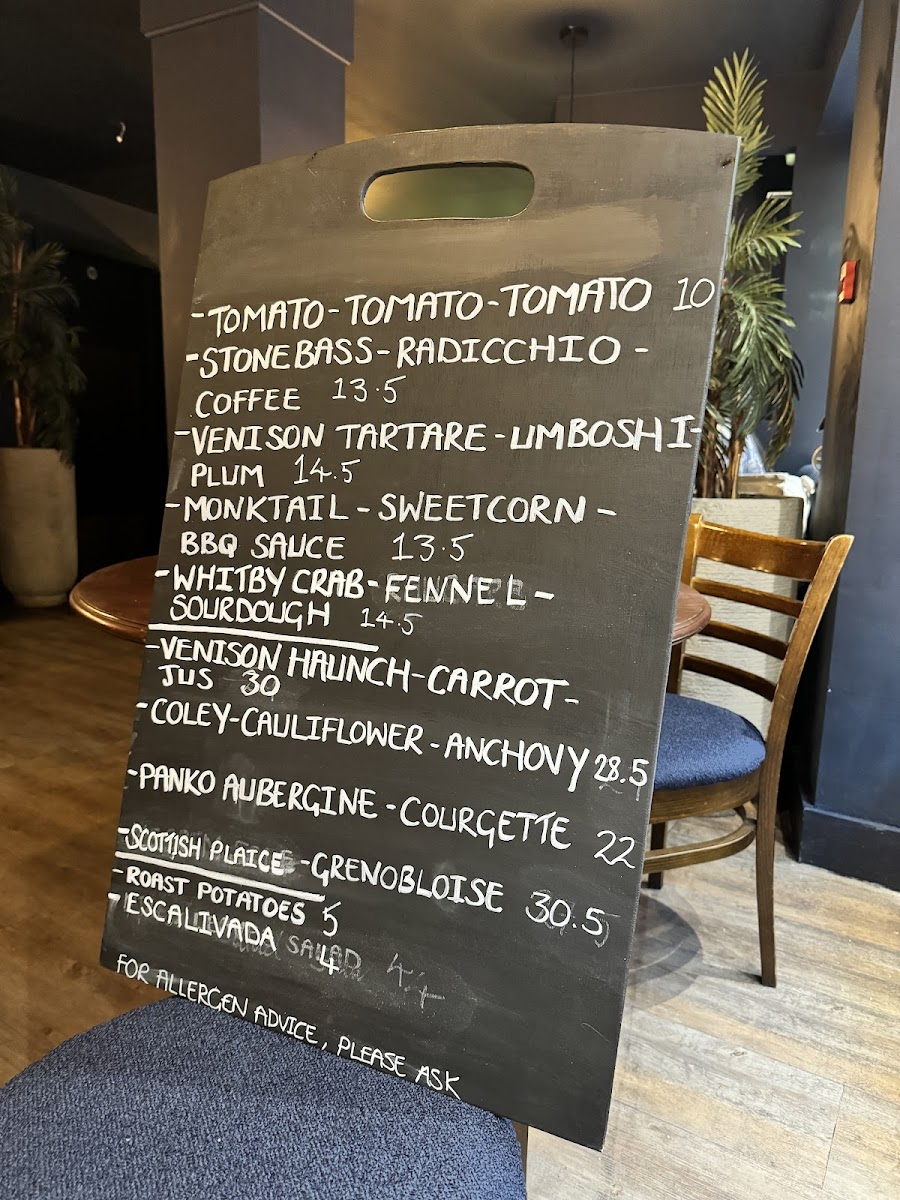 -TOMATO-TOMATO-TOMATO 10
-STONEBASS-RADICCHIO-
COFFEE 13.5
-VENISON TARTARE-UMBOSHI-
PLUM 14.5
-MONKTAIL-SWEETCORN-
BBQ SAUCE 13.5
-WHITBY CRAB-FENNEL-
SOURDOUGH 14.5
-VENISON HAUNCH-CARROT-
JUS 30
-COLEY-CAULIFLOWER-ANCHOVY 28.5
-PANKO AUBERGINE-COURGETTE 22
-SCOTTISH PLAICE-GRENOBLOISE 30.5
-ROAST POTATOES 5
-ESCALIVADA 4
FOR ALLERGEN ADVICE, PLEASE ASK